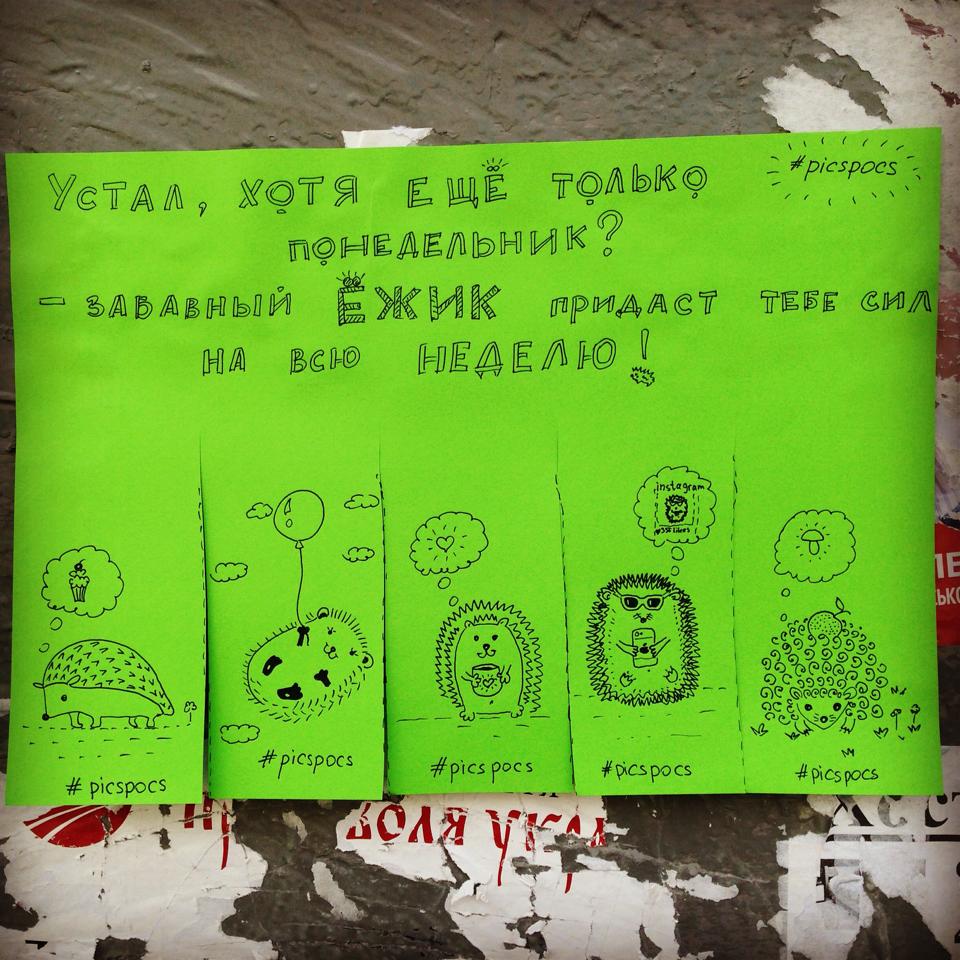 #picspocs
Устал, хотя ещё только
понедельник?
- забавный ЁЖИК придаст тебе сил
на всю неделю!
instagram
#picspocs
#picspocs
#picspocs
#picspocs
#picspocs